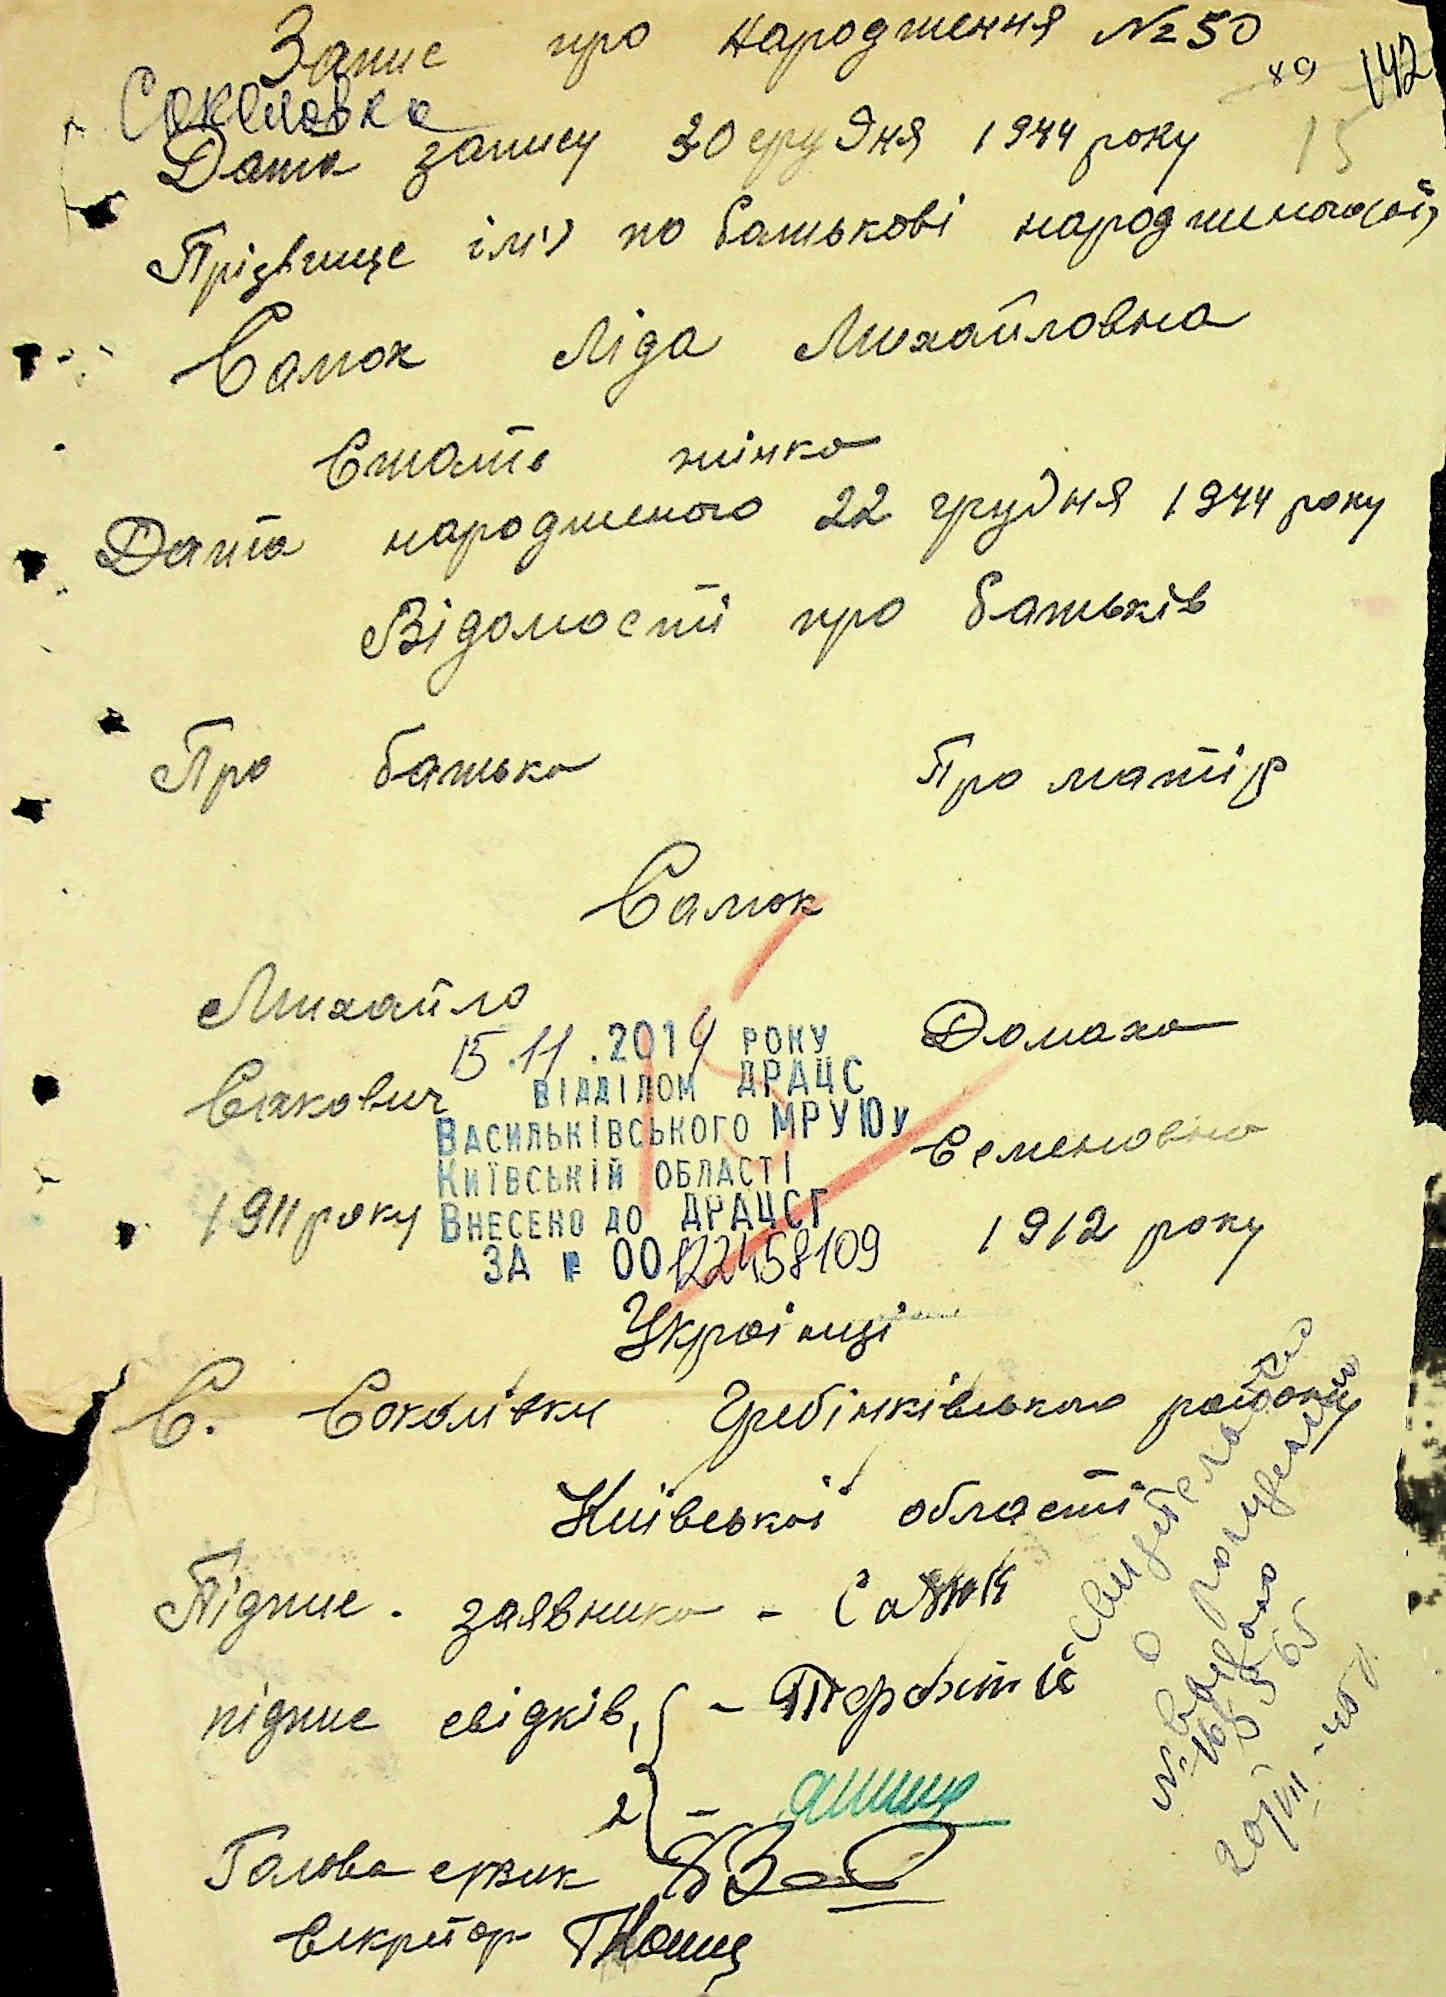 Запис про народження №50
89 142
Соколовка
Дата запису 30 грудня 1944 року 15
Прізвище ім'я по батькові народженого(ої)
Самок Ліда Михайловна
Стать жінка
Дата народженого 22 грудня 1944 року
Відомості про батьків
Про батька Про матір
Самок
Михайло Домаха
Сакович Семеновна
1911 року 1912 року
15.11.2014 РОКУ
ВІДДІЛОМ ДРАЦС
ВАСИЛЬКІВСЬКОГО МРУЮ у
КИЇВСЬКІЙ ОБЛАСТІ
ВНЕСЕНО ДО ДРАЦСГ
ЗА № 00122458109
Українці
С. Соколівки Гребінківського району
Київської області
Підпис. заявника - Самок
підпис свідків, 1 -
2 -
Голова
Секретар